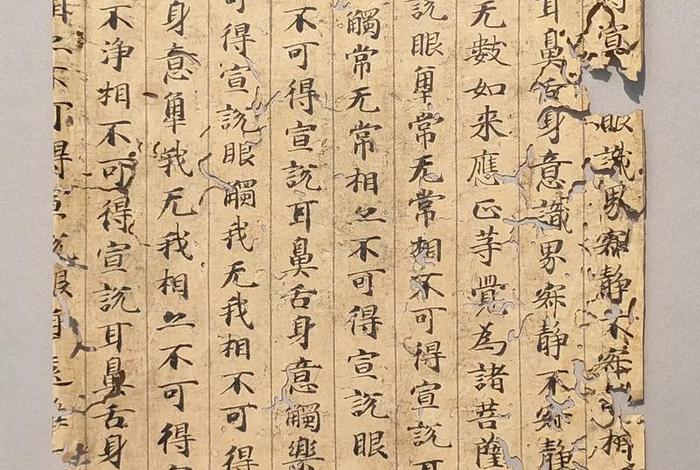 宣眼識界寂静不寂静相
耳鼻舌身意識界寂静不寂静
无數如来應正等覺為諸菩薩
說眼單常无常相不可得宣說耳
觸常无常相亦不可得宣說眼
不可得宣說耳鼻舌身意觸樂
可得宣說眼觸我无我相不可得
身意單我无我相亦不可得
不浄相不可得宣說耳鼻舌身
亦不可得宣說眼